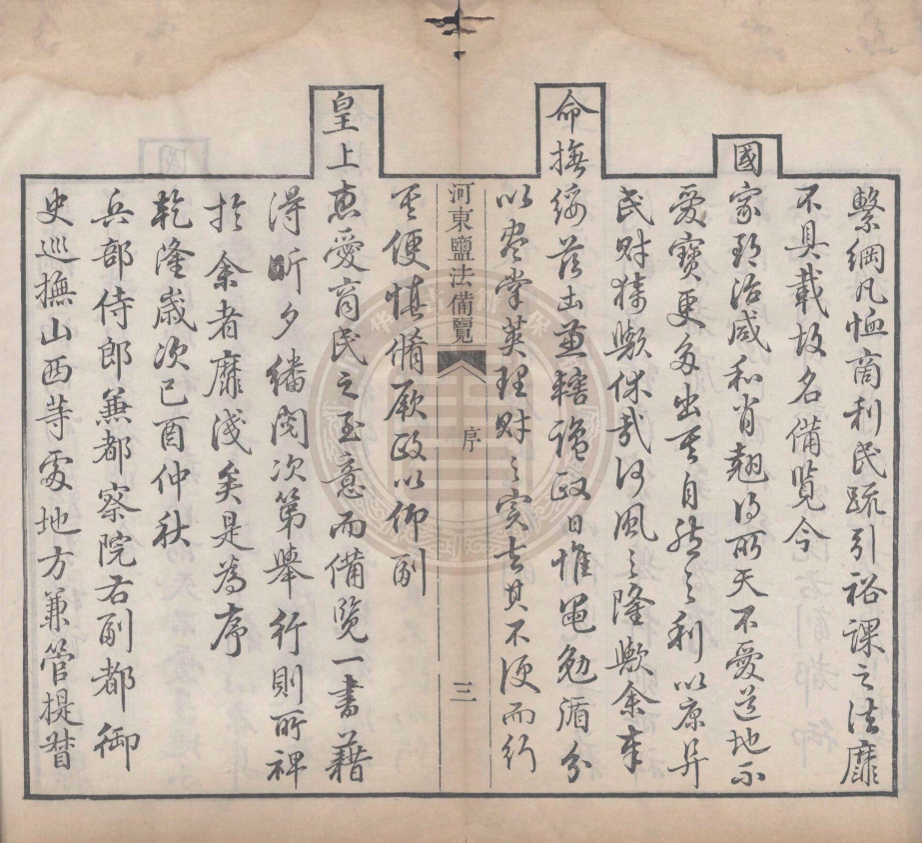 繫綱凡恤商利民疏引裕課之法靡
不具載故名備覽今
國家郅治咸和肖翹得所天不愛道地不
愛寶更多出其自然之利以康阜
民財猗歟休哉何風之隆歟余奉
命撫綏茲土兼轄鹺政日惟黽勉循分
以盡掌筴理財之實去其不便而行
河東鹽法備覽
序
三
其便慎備厥政以仰副
皇上惠愛育民之至意而備覽一書藉
得昕夕繙閱次第舉行則所裨
於余者靡淺矣是為序
乾隆歲次己酉仲秋
兵部侍郎兼都察院右副都御
史巡撫山西等處地方兼管提督